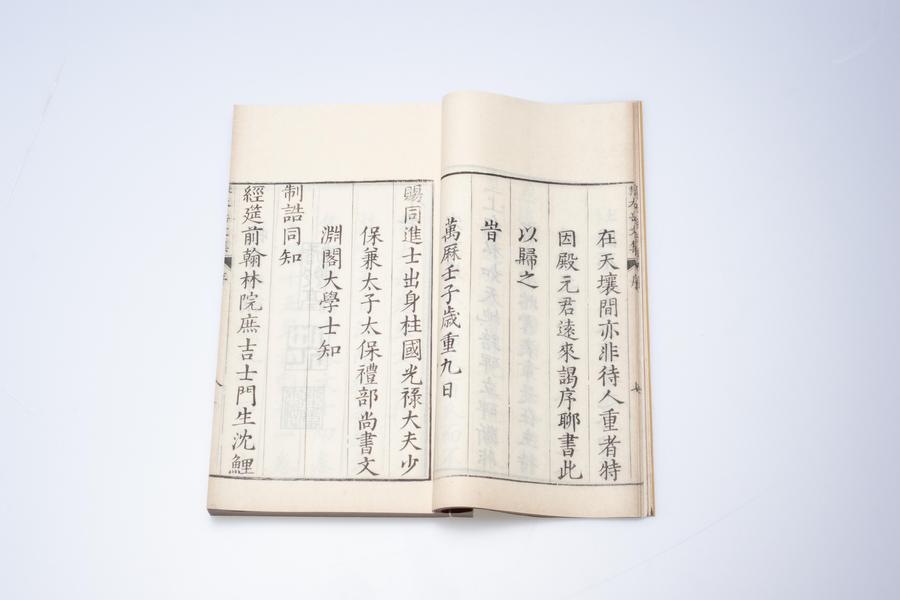 在天壤間亦非待人重者特
因殿元君遠來謁序聊書此
以歸之
旹
萬厤壬子歳重九日
賜同進士出身柱國光祿大夫少
保兼太子太保禮部尚書文
淵閣大學士知
制誥同知
經筵前翰林院庶吉士門生沈鯉